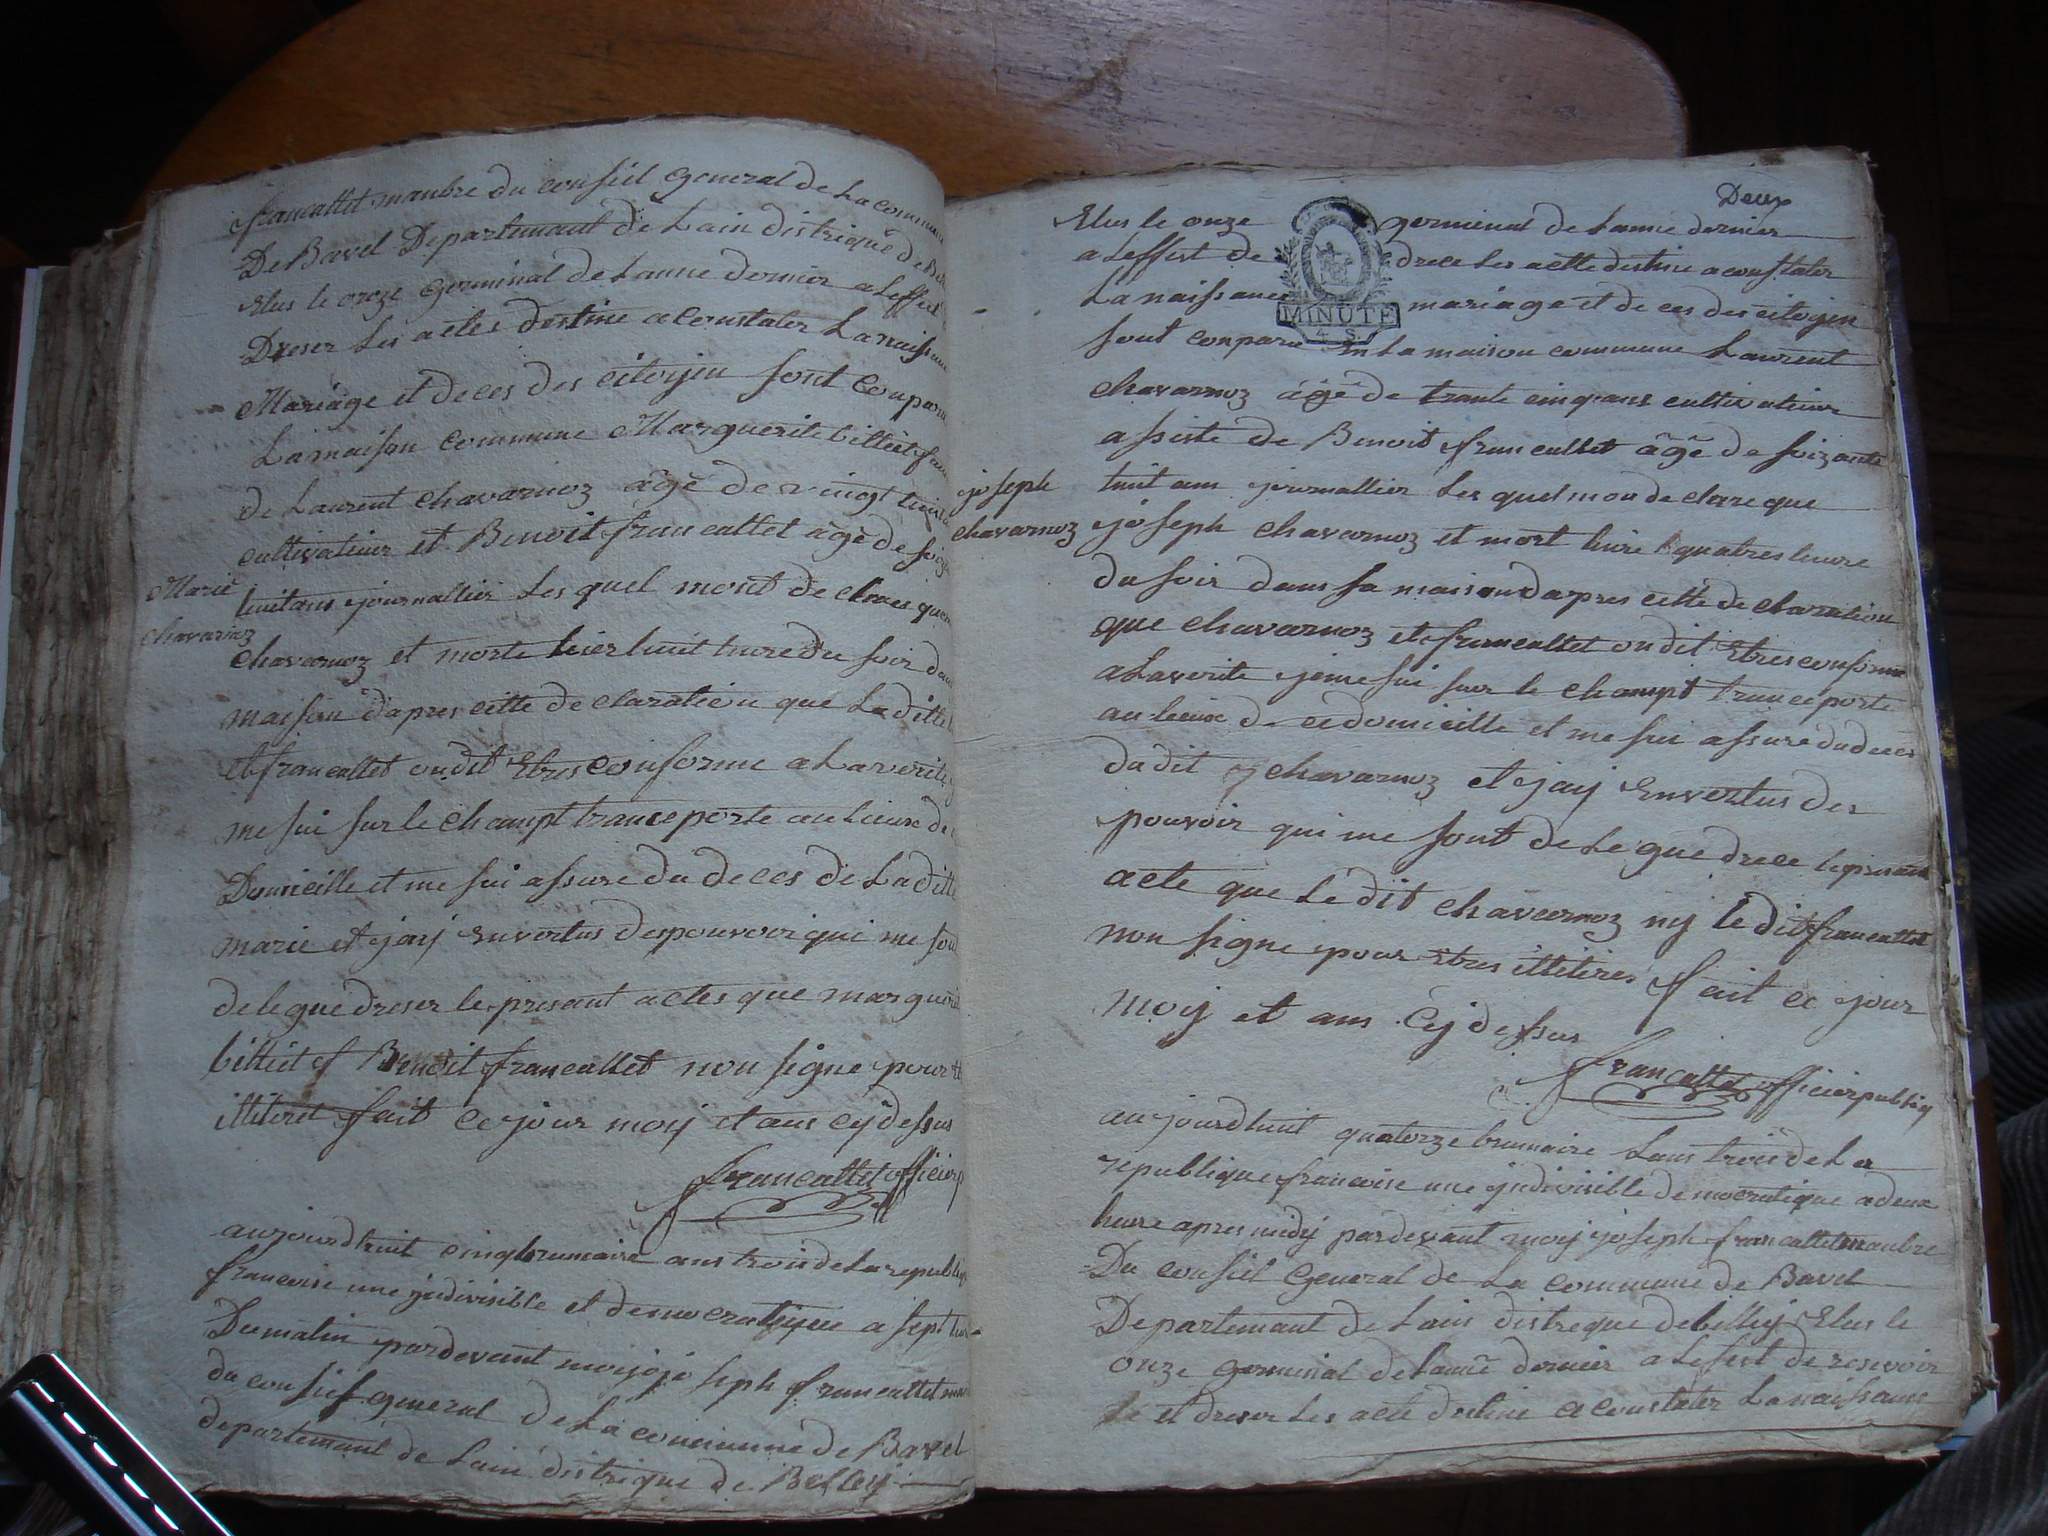 francallet manbre du conseil general de La commune
De Bavel Departemant de Lain distrique de
Elus le onze germinal de Lanne dernier a Leffect
Dreser Les actes destine a constater La naissance
Mariage et deces des citoyen sont conparu
La maison commune Marguerite billiet
de Laurent chavarnoz âgé de vingt
cultivateur et Benoit francallet agé de
Marie
huit ans journallier Les quel mont de clares que
chavarnoz
chavarnoz et morte hier huit hure du soir dans
maison dapres cette de claration que Laditte
et francallet ondit Etres conforme a La verite
me sui sur le champt tranceporte au lieux de
Domicille et me sui assure du deces de Laditte
marie et jay En vertus des pouvoir qui me sont
de legue dreser le presant actes que marguerite
billiet et Benoit francallet non signe pour
illiteret fait ce jour moij et ans cy dessus
francallet officier p
aujourdhuit cinq brumaire ans trois de La republiq
francoise une jndivisible et democratique a sept
Du matin pardevant moij joseph francallet
du conseil general de La commune de Bavel
departemant de Lain distrique de Belleij
Deux
Elus le onze germinal de Lanne dernier
a Leffect de drece Les actte destine a constater
La naissance mariage et de ces des citoyen
MINUTE
4. S.
sont conparu en La maison commune Laurent
chavarnoz âgé de trante cinq ans cultivateur
assiste de Benoit francallet âgé de soizante
joseph
huit ans journallier Les quel mon de clare que
chavarnoz
joseph chavarnoz et mort hiere a quatres heure
du soir dans sa maison dapres cette de claration
que chavarnoz et francallet on dit Etres conforme
a La verite je me sui sur le champt tranceporte
au lieux de ce domicille et me sui assure du deces
du dit chavarnoz et jay En vertus des
pouvoir qui me sont de Legue drece le presant
acte que Le dit chavarnoz ny le dit francallet
non signe pour Etres illiteres fait ce jour
moij et ans cij dessus
francallet officier publiq
aujourdhuit quatorze brumaire Lans trois de La
republique francoise une jndivisible democratique a deux
heure apres midy pardevant moij joseph francallet manbre
Du conseil general de La commune de Bavel
Departemant de Lain distreque de billeij Elus le
onze germinal de Lanne dernier a Lefect de resevoir
et dreser Les acte destine a constater La naissance